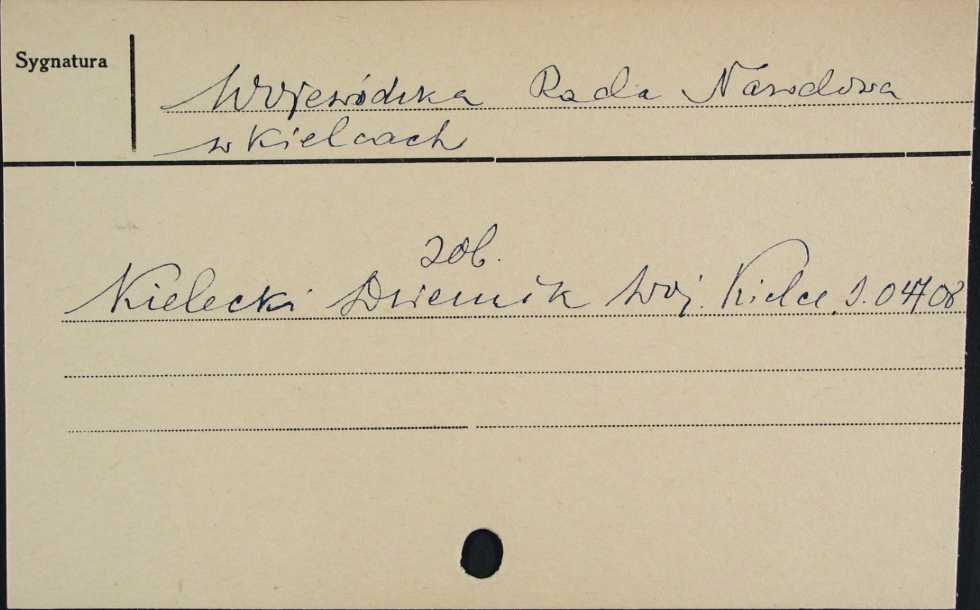 Sygnatura
Wojewódzka Rada Narodowa
w Kielcach
zob.
Kielecki Dziennik Woj. Kielce, S. 04708